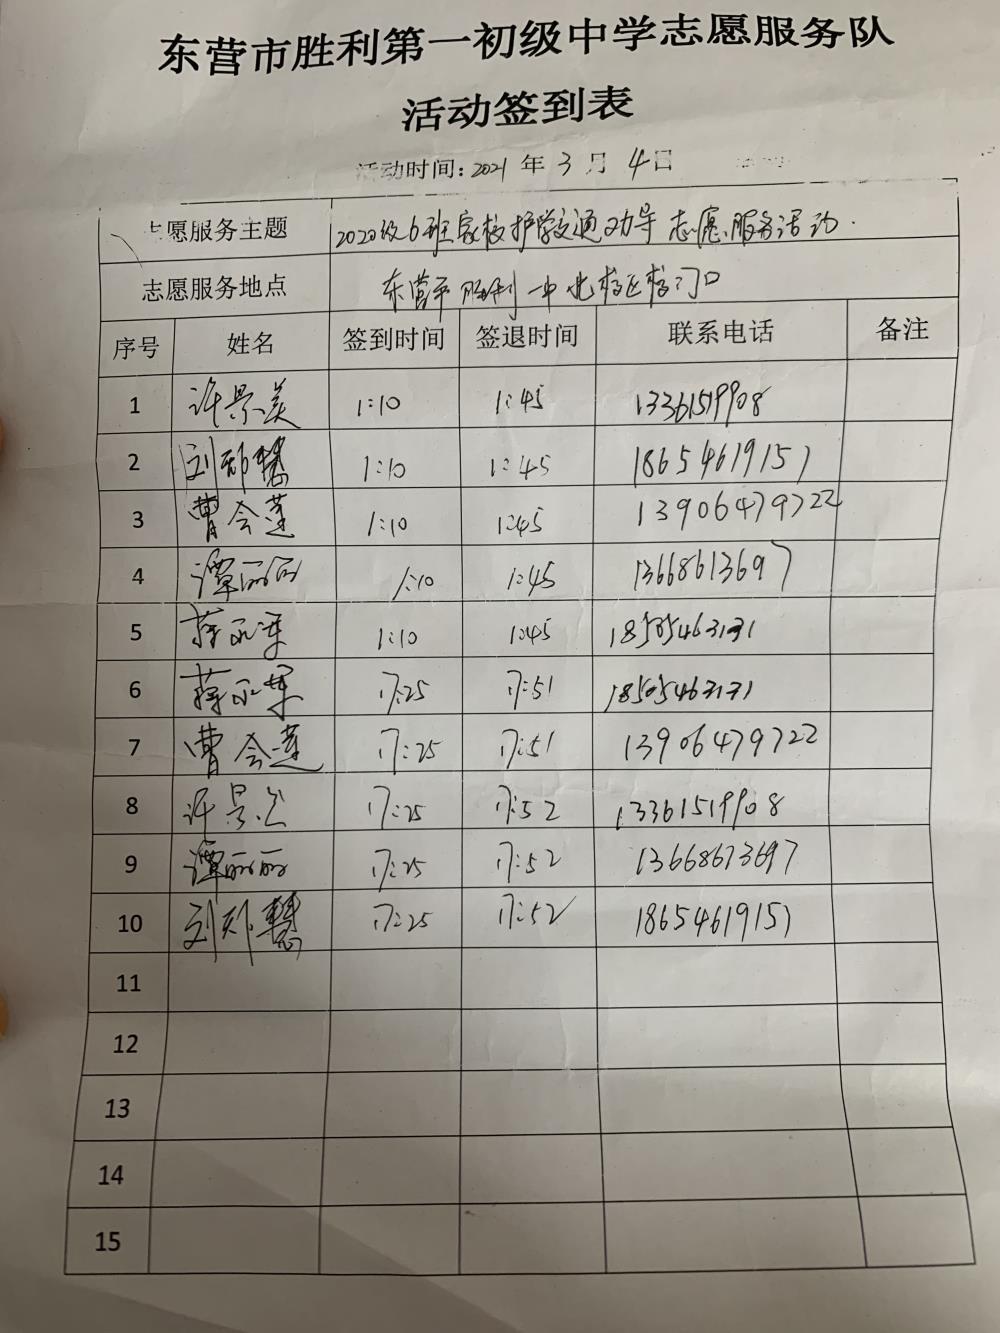 东营市胜利第一初级中学志愿服务队
活动签到表
活动时间：2021 年 3 月 4 日
志愿服务主题 2020级6班家校护学交通劝导志愿服务活动.
志愿服务地点 东营市胜利一中北校区校门口
序号 姓名 签到时间 签退时间 联系电话 备注
1 许景美 1:10 1:45 13361519908
2 刘郑慧 1:10 1:45 18654619157
3 曹会莲 1:10 1:45 13906479722
4 谭丽丽 1:10 1:45 13668613697
5 蒋永军 1:10 1:45 18505463131
6 蒋永军 17:25 17:51 18505463131
7 曹会莲 17:25 17:51 13906479722
8 许景美 17:25 17:52 13361519908
9 谭丽丽 17:25 17:52 13668673697
10 刘郑慧 17:25 17:52 18654619157
11
12
13
14
15